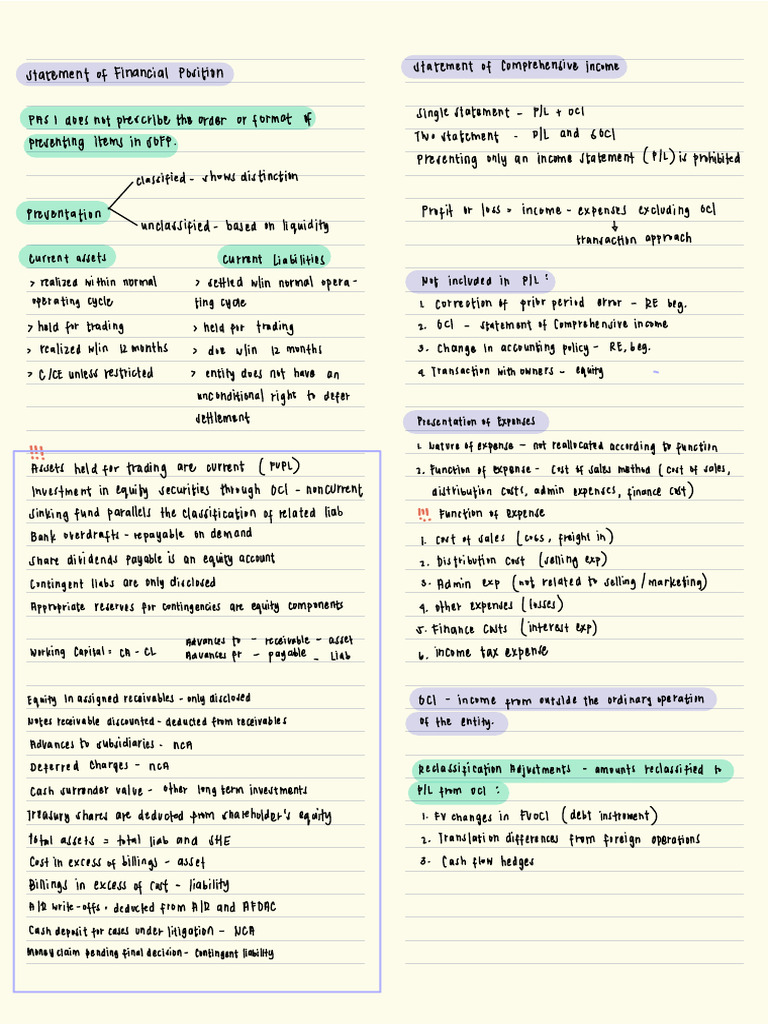 Statement of Financial Position
PAS 1 does not prescribe the order or format of
presenting items in SOFP.
Presentation
classified - shows distinction
unclassified - based on liquidity
Current assets
> realized within normal
operating cycle
> held for trading
> realized w/in 12 months
> C/CE unless restricted
Current Liabilities
> settled w/in normal opera-
ting cycle
> held for trading
> due w/in 12 months
> entity does not have an
unconditional right to defer
settlement
!!!
Assets held for trading are current (FVPL)
Investment in equity securities through OCI - noncurrent
Sinking fund parallels the classification of related liab
Bank overdrafts - repayable on demand
Share dividends payable is an equity account
Contingent liabs are only disclosed
Appropriate reserves for contingencies are equity components
Working Capital = CA - CL
Advances to - receivable - asset
Advances fr - payable - Liab
Equity in assigned receivables - only disclosed
Notes receivable discounted - deducted from receivables
Advances to subsidiaries - NCA
Deferred Charges - NCA
Cash surrender value - other long term investments
Treasury shares are deducted from shareholder's equity
Total assets = total liab and SHE
Cost in excess of billings - asset
Billings in excess of cost - liability
A/R write-offs - deducted from A/R and AFDAC
Cash deposit for cases under litigation - NCA
Money claim pending final decision - Contingent liability
Statement of Comprehensive income
Single statement - P/L + OCI
Two statement - P/L and SOCI
Presenting only an income statement (P/L) is prohibited
Profit or loss = income - expenses excluding OCI
↓
transaction approach
Not included in P/L:
1. Correction of prior period error - RE beg.
2. OCI - statement of Comprehensive income
3. Change in accounting policy - RE, beg.
4. Transaction with owners - equity
Presentation of Expenses
1. Nature of expense - not reallocated according to function
2. Function of expense - Cost of sales method (cost of sales,
distribution costs, admin expenses, finance cost)
!!! Function of expense
1. Cost of sales (COGS, freight in)
2. Distribution cost (selling exp)
3. Admin exp (not related to selling/marketing)
4. Other expenses (losses)
5. Finance costs (interest exp)
6. income tax expense
OCI - income from outside the ordinary operation
of the entity.
Reclassification Adjustments - amounts reclassified to
P/L from OCI:
1. FV changes in FVOCI (debt instrument)
2. Translation differences from foreign operations
3. Cash flow hedges